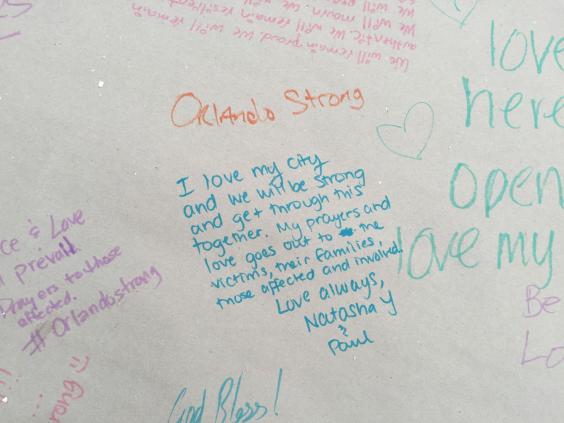 We will remain proud. We will remain
authentic. We will remain resilient.
We will mourn. We
we will
love
here
Orlando Strong
open
love my
I love my city
and we will be strong
and get through this
together. My prayers and
love goes out to the
victims, their families,
those affected and involved!
Love always,
Natasha Y
&
Paul
ce & Love
prevail
Prayers to those
affected.
#Orlandostrong
Be
God Bless!